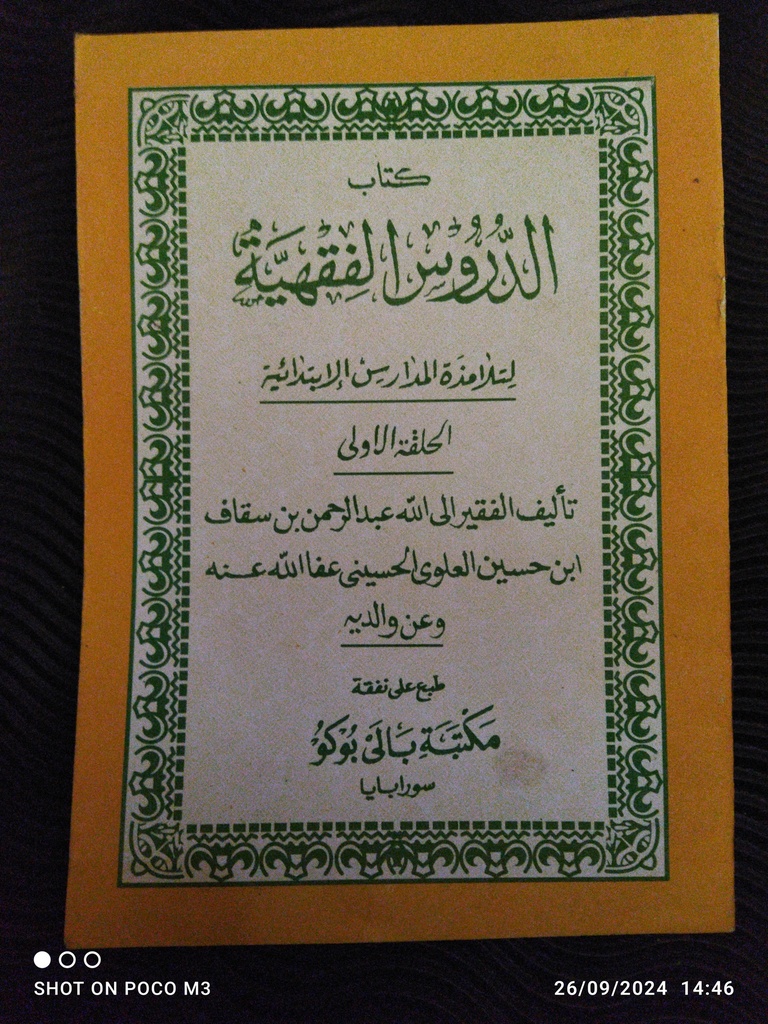 كتاب
الدُّرُوْسُ الفِقْهِيَّة
لتلامذة المدارس الابتدائية
الحلقة الاولى
تأليف الفقير الى الله عبد الرحمن بن سقاف
ابن حسين العلوى الحسينى عفا الله عنه
وعن والديه
طبع على نفقة
مَكْتَبَةِ بَالَىْ بُوْكُوْ
سورابايا
SHOT ON POCO M3
26/09/2024 14:46